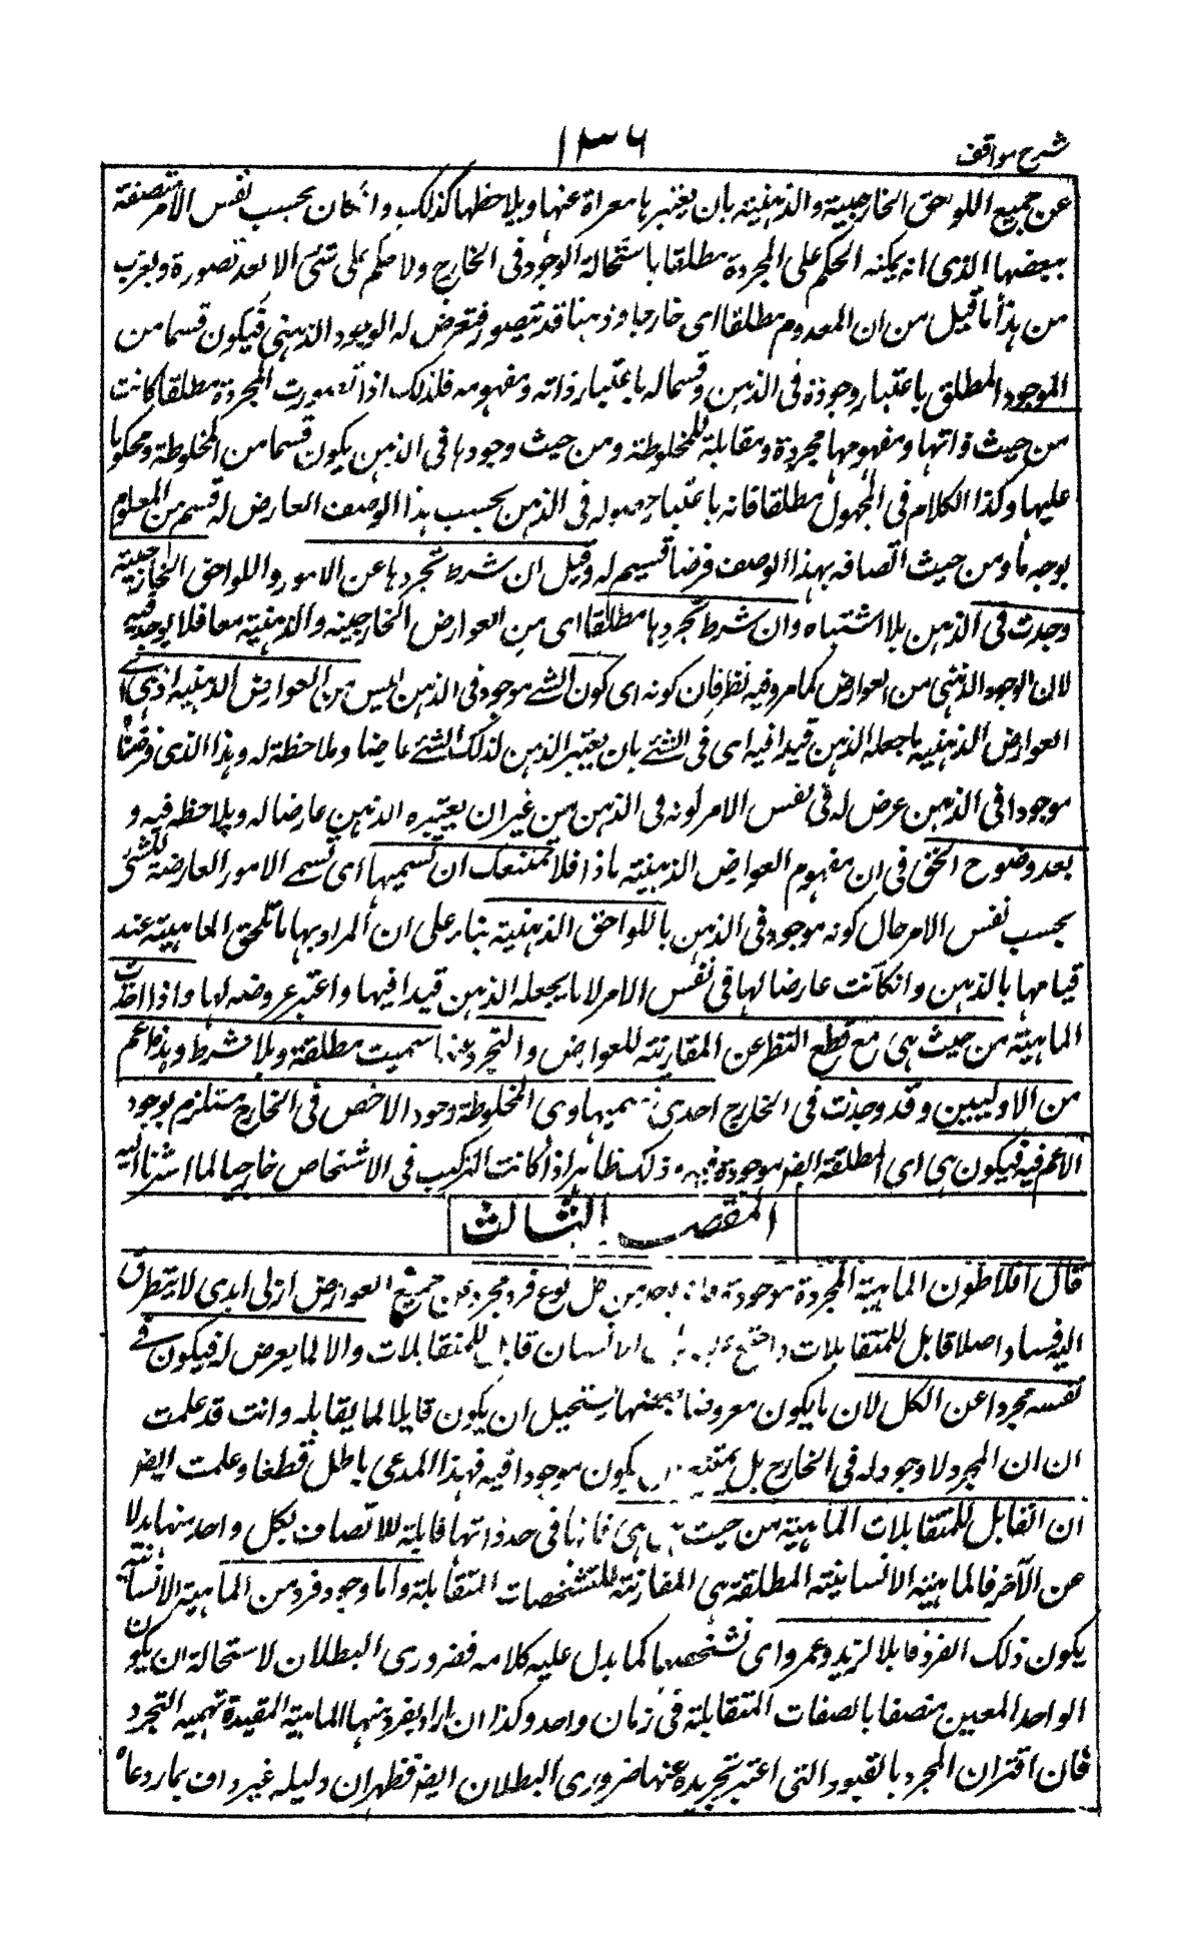 شرح مواقف
۱۳۶
عن جميع اللواحق الخارجية والذهنية بان يعتبرها معراة عنها ويلاحظها كذلك وانكان بحسب نفس الامر متصفة
ببعضها الذى انه يمكنه الحكم على المجردة مطلقا باستحالة الوجود فى الخارج ولا حكم على شئ الا بعد تصوره وبقرب
من هذا ما قيل من ان المعدوم مطلقا اى خارجا وذهنا قد يتصور فتعرض له الوجود الذهنى فيكون قسما من
الموجود المطلق باعتبار وجوده فى الذهن وقسما له باعتبار ذاته ومفهومه فلذلك اذا تصورت المجردة مطلقا كانت
من حيث ذاتها ومفهومها مجردة ومقابلة للمخلوطة ومن حيث وجودها فى الذهن يكون قسما من المخلوطة ومحكوما
عليها وكذا الكلام فى المجهول مطلقا فانه باعتبار حصوله فى الذهن بحسب هذا الوصف العارض له قسم من المعلوم
بوجه ما ومن حيث اتصافه بهذا الوصف فرضا قسيم له وقيل ان شرط تجردها عن الامور واللواحق الخارجية
وجدت فى الذهن بلا اشتباه وان شرط تجردها مطلقا اى من العوارض الخارجية والذهنية معا فلا يوجد فيه
لان الوجود الذهنى من العوارض كما مر وفيه نظر فان كونه اى كون الشئ موجود فى الذهن ليس من العوارض الذهنية اذ هى اى
العوارض الذهنية ما جعله الذهن قيدا فيه اى فى الشئ بان يعتبر الذهن لذلك الشئ عارضا وملاحظة له وهذا الذى فرضناه
موجودا فى الذهن عرض له فى نفس الامر كونه فى الذهن من غير ان يعتبره الذهن عارضا له ويلاحظه فيه و
بعد وضوح الحق فى ان مفهوم العوارض الذهنية ماذا فلا نمنعك ان تسميها اى تسمى الامور العارضة للشئ
بحسب نفس الامر حال كونه موجود فى الذهن باللواحق الذهنية بناء على ان المراد بها ما تلحق الماهية عند
قيامها بالذهن وانكانت عارضا لها فى نفس الامر لا ما يجعله الذهن قيدا فيها واعتبر عروضه لها واذا اخذت
الماهية من حيث هى مع قطع النظر عن المقارنة للعوارض والتجرد عنها سميت مطلقة وبلا شرط وهذه اعم
من الاوليين وقد وجدت فى الخارج احدى قسميها وهى المخلوطة وجود الاخص فى الخارج مستلزم بوجود
الاعم فيه فيكون هى اى المطلقة ايضا موجودة فيه وذلك ظاهر اذا كانت التركيب فى الاشخاص خارجيا لما اشرنا اليه
المقصد الثالث
قال افلاطون الماهية المجردة موجودة وانه يوجد من كل نوع فرد مجرد عن جميع العوارض ازلى ابدى لا يتطرق
اليه فساد اصلا قابل للمتقابلات واحتج عليه بان الانسان قابل للمتقابلات والا لما يعرض له فيكون فى
نفسه مجردا عن الكل لان ما يكون معروضا لبعضها يستحيل ان يكون قابلا لما يقابله وانت قد علمت
ان ان المجرد لا وجود له فى الخارج بل يمتنع ان يكون موجودا فيه فهذا المدعى باطل قطعا وعلمت ايضا
ان القابل للمتقابلات الماهية من حيث هى هى فانها فى حد ذاتها قابلة للاتصاف بكل واحد منها بدلا
عن الآخر فالماهية الانسانية المطلقة هى المقارنة للتشخصات المتقابلة واما وجود فرد من الماهية الانسانية
يكون ذلك الفرد قابلا لزيد وعمرو اى تشخصهما كما يدل عليه كلامه فضرورى البطلان لاستحالة ان يكون
الواحد المعين متصفا بالصفات المتقابلة فى زمان واحد وكذا ان اراد بفرد منها الماهية المقيدة بقيد التجرد
فان اقتران المجرد بالقيود التى اعتبر تجريده عنها ضرورى البطلان ايضا فظهر ان دليله غير واف بما ادعاه